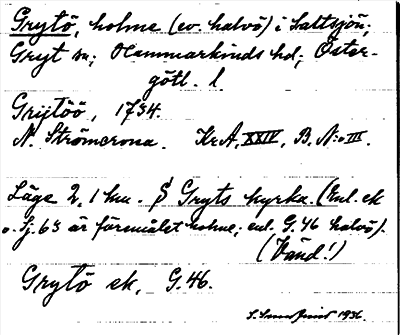 Grytö, holme (ev. halvö) i Saltsjön;
Gryt sn; Hammarkinds hd; Öster-
götl. l.
Grijtöö, 1734.
N. Strömcrona. Kr.A. XXIV, B. N:o III.
Läge 2,1 km. S Gryts kyrka. (Enl. ek
o. Sj. 63 är föremålet holme; enl. G. 46 halvö).
(Vänd!)
Grytö ek, G. 46.
1936.